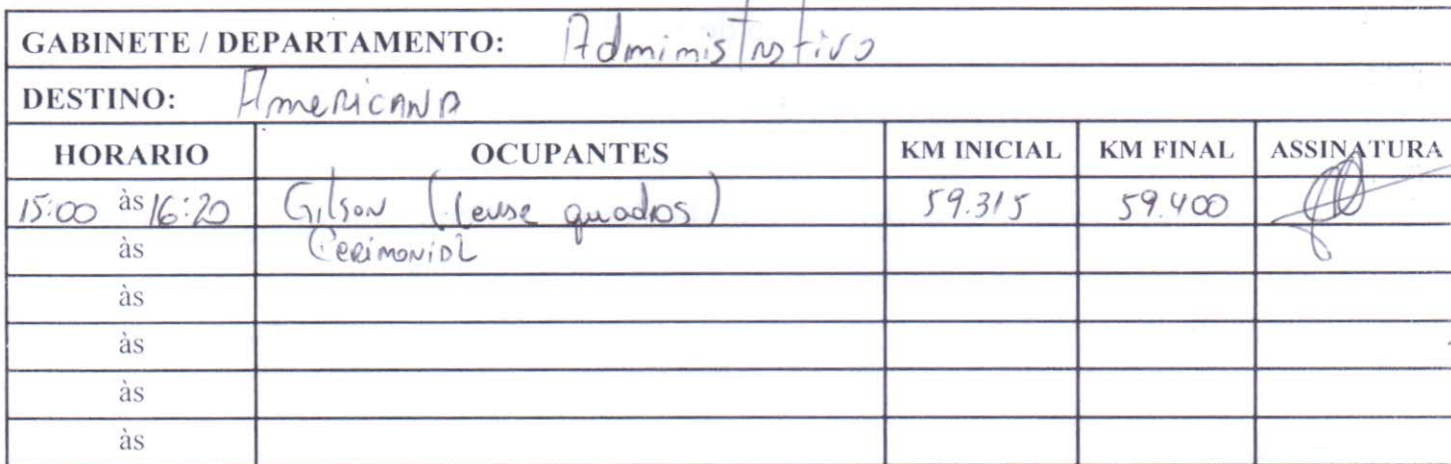 GABINETE / DEPARTAMENTO: Administrativo
DESTINO: Americana
HORARIO OCUPANTES KM INICIAL KM FINAL ASSINATURA
15:00 às 16:20 Gilson ( quadros) 59.315 59.400
às Cerimonial
às
às
às
às